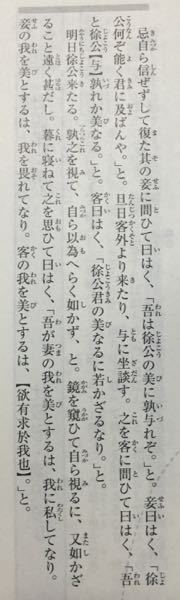 忌自ら信ぜずして復た其の妾に問ひて曰はく、「吾は徐公の美に孰与れぞ。」と。妾曰はく、「徐
公何ぞ能く君に及ばんや。」と。旦日客外より来たり、与に坐談す。之を客に問ひて曰はく、「吾
と徐公【与】孰れか美なる。」と。客曰はく、「徐公君の美なるに若かざるなり。」と。
明日徐公来たる。孰之を視て、自ら以為へらく如かず、と。鏡を窺ひて自ら視るに、又如かざ
ること遠く甚だし。暮に寝ねて之を思ひて曰はく、「吾が妻の我を美とするは、我に私してなり。
妾の我を美とするは、我を畏れてなり。客の我を美とするは、【欲有求於我也】。」と。